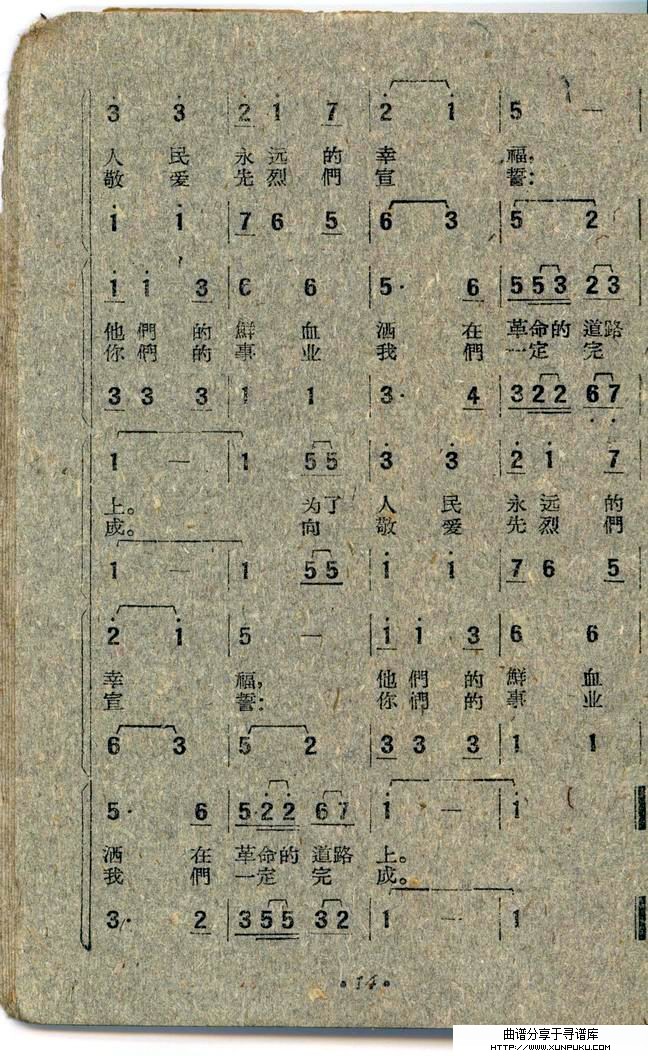 3 3 | 2 1 7 | 2 1 | 5 —
人 民 永 远 的 幸 福,
敬 爱 先 烈 們 宣 誓:
1 1 | 7 6 5 | 6 3 | 5 2
1 1 3 | 6 6 | 5· 6 | 5 5 3 2 3
他 們 的 鮮 血 洒 在 革 命 的 道 路
你 們 的 事 业 我 們 一 定 完
3 3 3 | 1 1 | 3· 4 | 3 2 2 6 7
1 — | 1 5 5 | 3 3 | 2 1 7
上。 为 了 人 民 永 远 的
成。 向 敬 爱 先 烈 們
1 — | 1 5 5 | 1 1 | 7 6 5
2 1 | 5 — | 1 1 3 | 6 6
幸 福, 他 們 的 鮮 血
宣 誓: 你 們 的 事 业
6 3 | 5 2 | 3 3 3 | 1 1
5· 6 | 5·2 2 6 7 | 1 — | 1
洒 在 革 命 的 道 路 上。
我 們 一 定 完 成。
3· 2 | 3 5 5 3 2 | 1 — | 1
曲谱分享于寻谱库
HTTP://WWW.XUNPUKU.COM